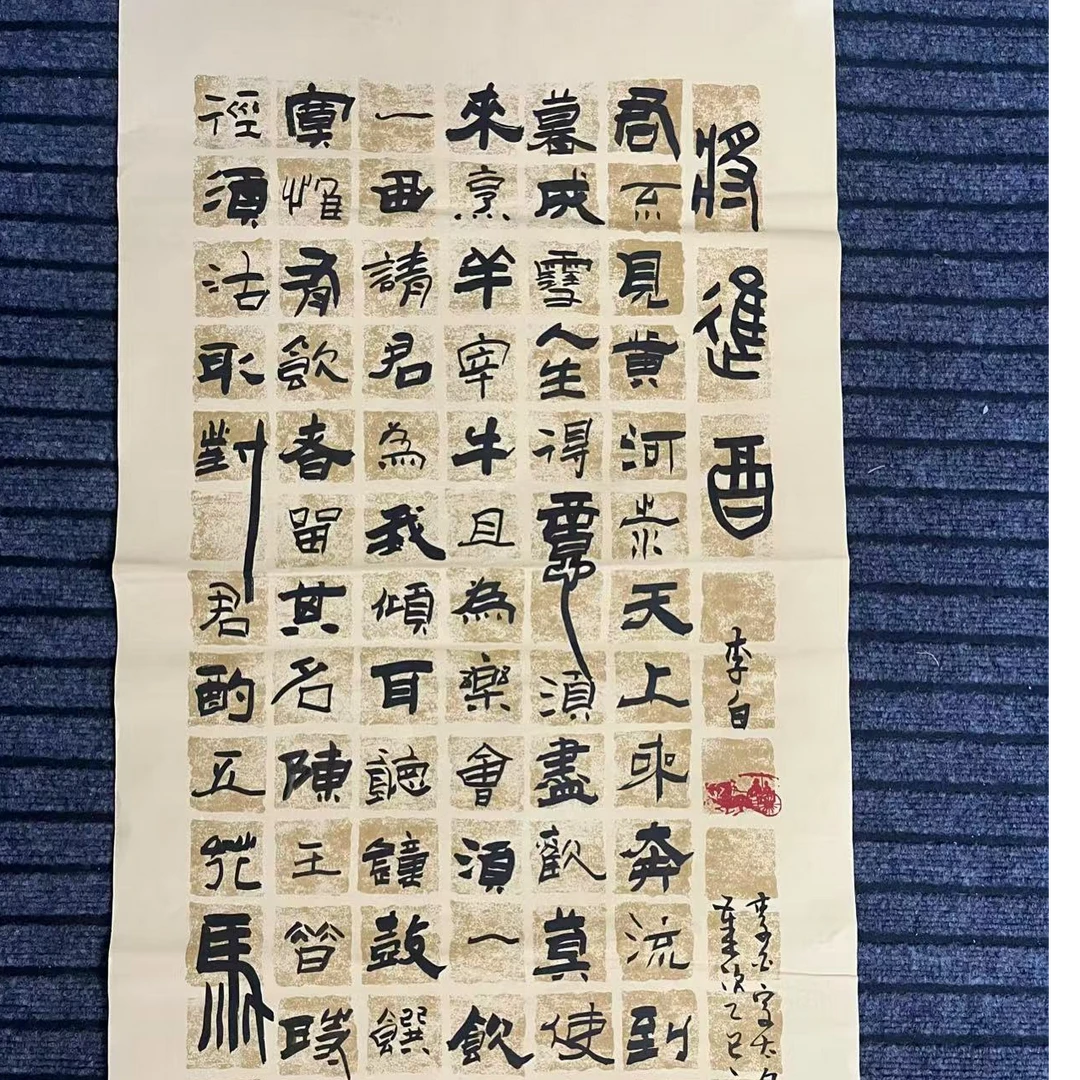 將進酉
李白
李白字太
君不見黃河之水天上來奔流到
暮成雪人生得意須盡歡莫使
來烹羊宰牛且為樂會須一飲
一曲請君為我傾耳聽鐘鼓饌
寞惟有飲者留其名陳王昔時
徑須沽取對君酌五花馬